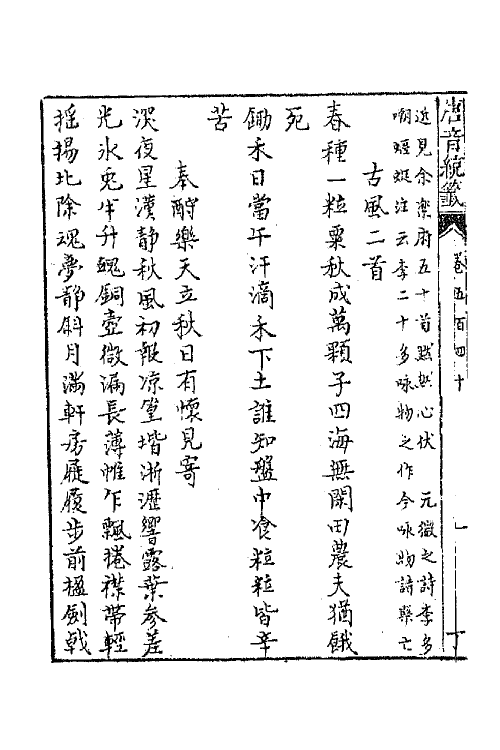 唐音統籤 卷五百四十
近見余樂府五十首默然心伏 元微之詩李多
嘲蝘蜓注云李二十多咏物之作今咏物詩縣亡
古風二首
春種一粒粟秋成萬顆子四海無閑田農夫猶餓
死
鋤禾日當午汗滴禾下土誰知盤中飡粒粒皆辛
苦
奉酧樂天立秋日有懷見寄
深夜星漢静秋風初報凉堦淅瀝響露葉参差
光氷兎半升魄銅壺微漏長薄帷乍飄捲襟帶輕
摇揚比除魂夢静斜月滿軒房屣履步前楹劍戟